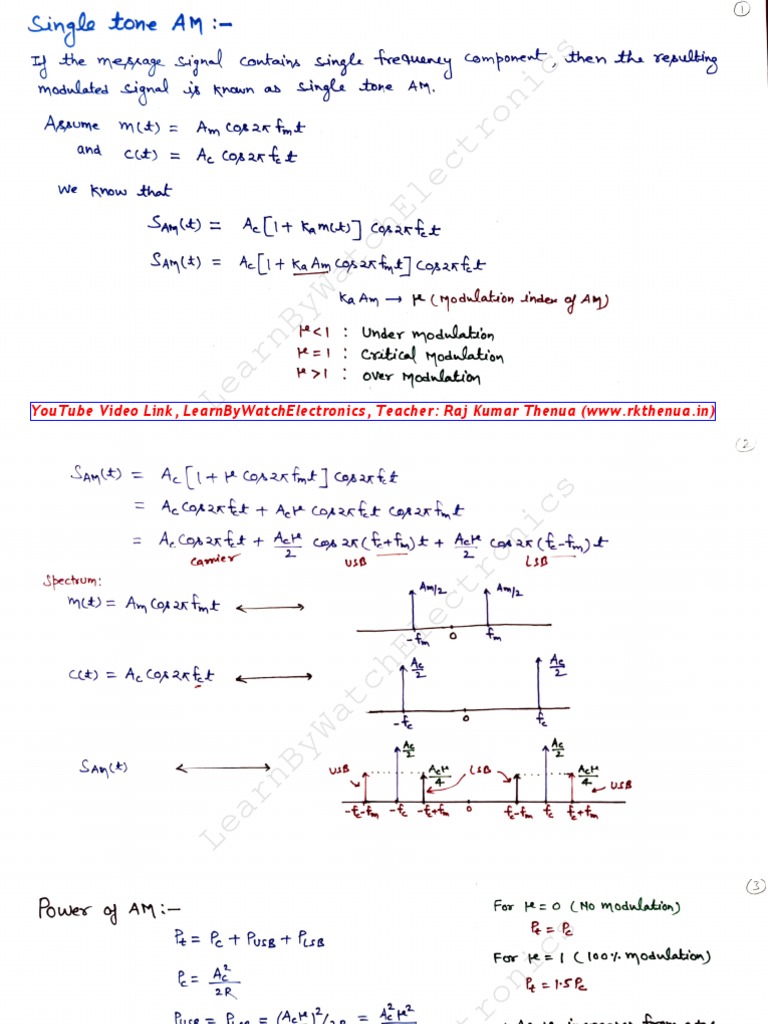 1
Single tone AM :-
If the message signal contains single frequency component, then the resulting
modulated signal is known as single tone AM.
Assume m(t) = Am cos2π fmt
and c(t) = Ac cos2π fct
We know that
SAM(t) = Ac[1+ Kam(t)] cos2πfct
SAM(t) = Ac[1+ KaAm cos2πfmt] cos2πfct
KaAm → μ (Modulation index of AM)
μ<1 : Under modulation
μ=1 : Critical Modulation
μ>1 : over Modulation
LearnByWatchElectronics
YouTube Video Link, LearnByWatchElectronics, Teacher: Raj Kumar Thenua (www.rkthenua.in)
2
SAM(t) = Ac[1+ μ cos2πfmt] cos2πfct
= Ac cos2πfct + Acμ cos2πfct cos2πfmt
= Ac cos2πfct + Acμ/2 cos2π(fc+fm)t + Acμ/2 cos2π(fc-fm)t
carrier USB LSB
Spectrum:
m(t) = Am cos2πfmt ↔ Am/2 Am/2
-fm 0 fm
c(t) = Ac cos2πfct ↔ Ac/2 Ac/2
-fc 0 fc
SAM(t) ↔ USB Ac/2 Acμ/4 LSB Ac/2 Acμ/4 USB
-fc-fm -fc -fc+fm 0 fc-fm fc fc+fm
LearnByWatchElectronics
3
Power of AM :-
Pt = Pc + PUSB + PLSB
Pc = Ac²/2R
PUSB = PLSB = (Acμ)²/2R = Ac²μ²
For μ=0 (No modulation)
Pt = Pc
For μ=1 (100% modulation)
Pt = 1.5Pc